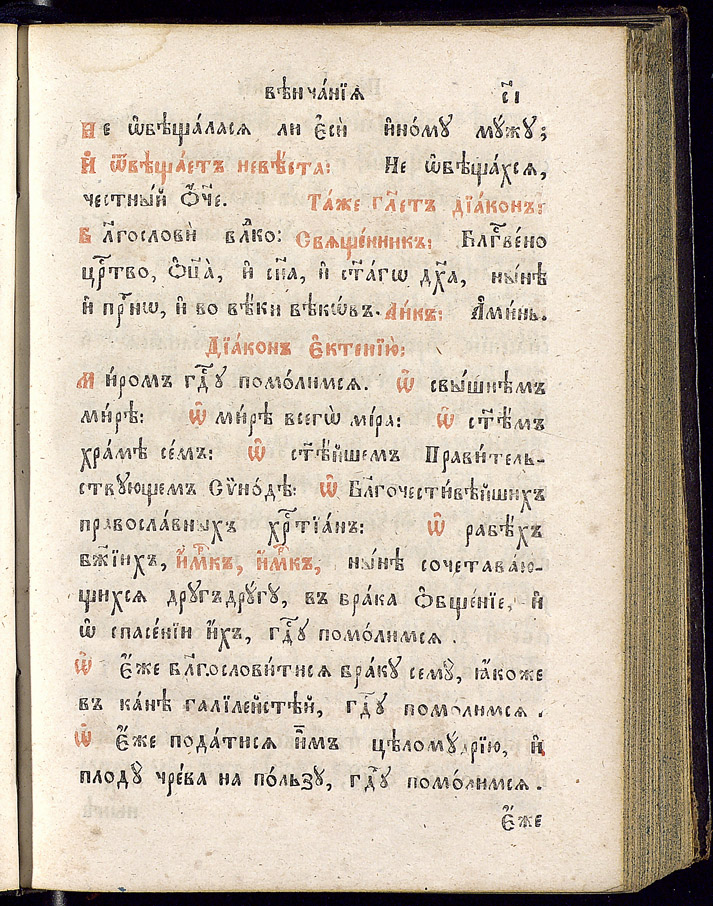 вѣнча́нїѧ
с҃і
Не ѡ҆бѣща́ласѧ ли є҆сѝ и҆но́мꙋ мꙋ́жꙋ;
И҆ ѿвѣща́етъ невѣ́ста: Не ѡ҆бѣща́хсѧ,
че́стный ѻ҆́ч҃е. Та́же гл҃етъ дїа́конъ:
Бл҃гословѝ влⷣко: Свѧще́нникъ: Блгⷭ҇ве́но
црⷭ҇тво, ѻ҆ц҃а̀, и҆ сн҃а, и҆ ст҃а́гѡ дх҃а, ны́нѣ
и҆ прⷭ҇нѡ, и҆ во вѣ́ки вѣкѡ́въ. Ли́къ: А҆ми́нь.
Дїа́конъ є҆ктенїю̀:
Ми́ромъ гдⷭ҇ꙋ помо́лимсѧ. Ѡ҆ свы́шнѣмъ
ми́рѣ: Ѡ҆ ми́рѣ всегѡ̀ мі́ра: Ѡ҆ ст҃ѣ́мъ
хра́мѣ се́мъ: Ѡ҆ ст҃ѣ́йшемъ Прави́тель-
ствꙋющемъ Сѷно́дѣ: Ѡ҆ Бл҃гочести́вѣйшихъ
правосла́вныхъ хрⷭ҇тїа́нъ: Ѡ҆ рабѣ́хъ
бж҃їихъ, и҆́мⷬ҇къ, и҆́мⷬ҇къ, ны́нѣ сочетава́ю-
щихсѧ дрꙋгъдрꙋгꙋ, въ бра́ка ѻ҆бще́нїе, и҆
ѡ҆ спасе́нїи и҆́хъ, гдⷭ҇ꙋ помо́лимсѧ.
Ѡ҆ є҆́же бл҃гослови́тисѧ бра́кꙋ семꙋ̀, ꙗ҆́коже
въ ка́нѣ галїле́йстѣй, гдⷭ҇ꙋ помо́лимсѧ.
Ѡ҆ є҆́же пода́тисѧ и҆̀мъ цѣломꙋ́дрїю, и҆
плодꙋ̀ чре́ва на по́льзꙋ, гдⷭ҇ꙋ помо́лимсѧ.
є҆́же